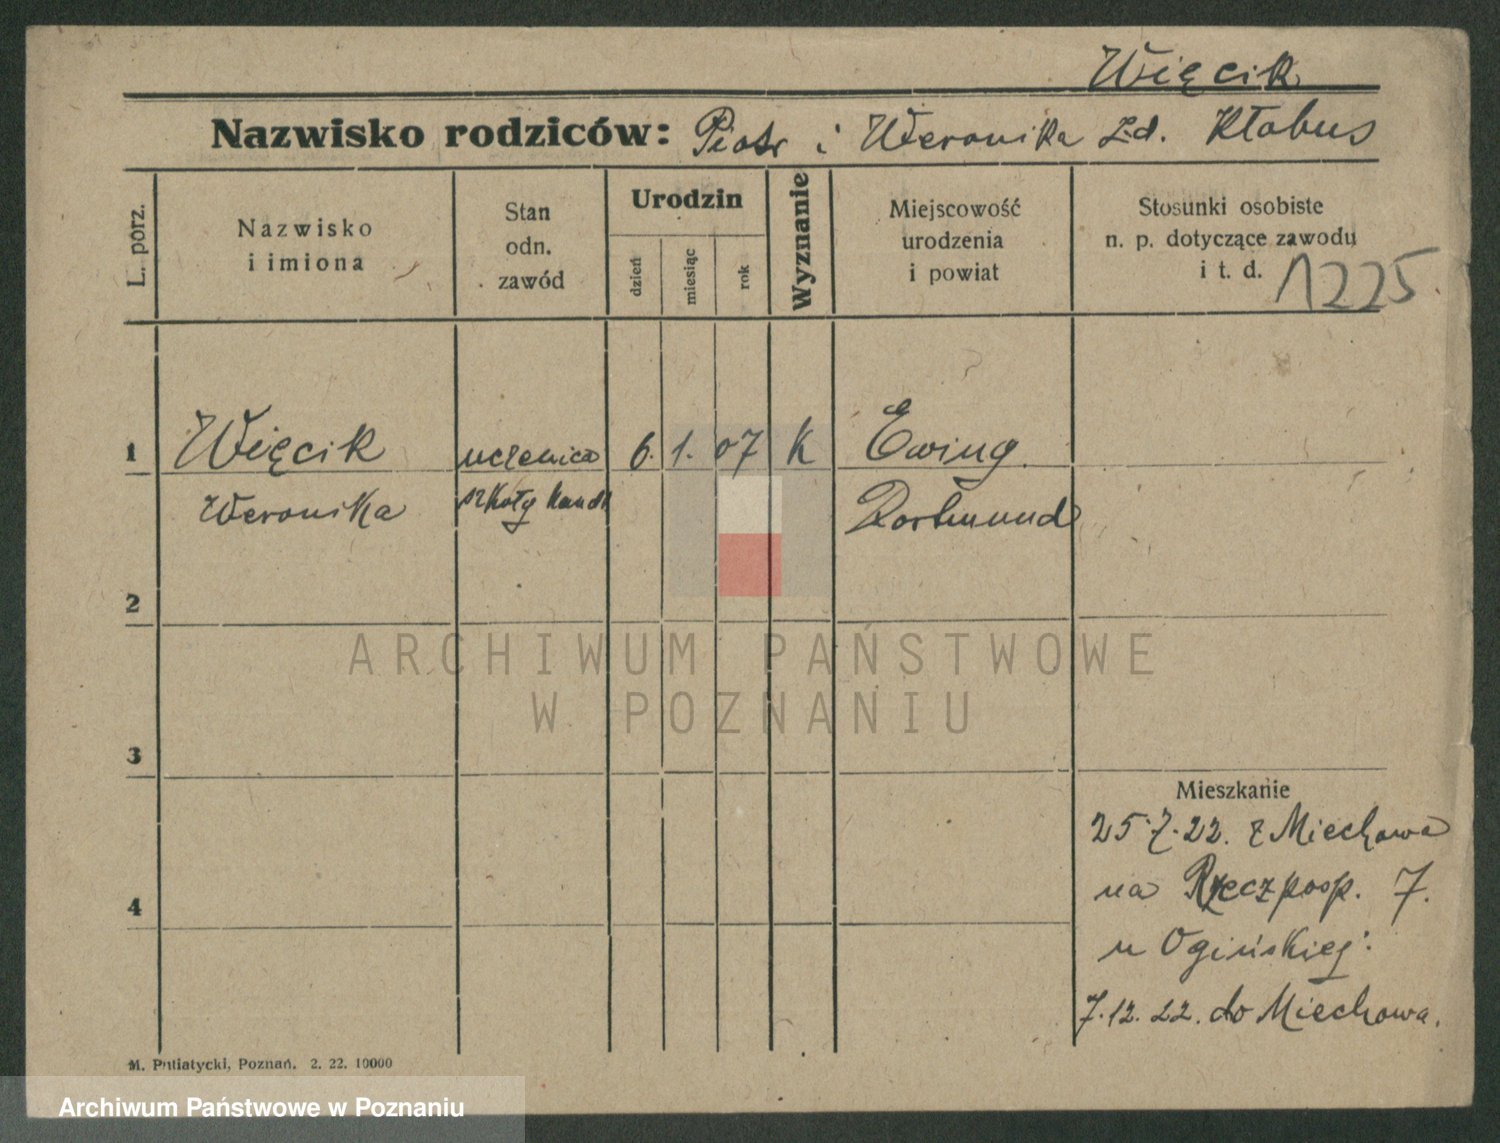 Więcik
Nazwisko rodziców: Piotr i Weronika z.d. Kłobus
L. porz.
Nazwisko
i imiona
Stan
odn.
zawód
Urodzin
dzień
miesiąc
rok
Wyznanie
Miejscowość
urodzenia
i powiat
Stosunki osobiste
n. p. dotyczące zawodu
i t. d.
1225
1 Więcik uczenica 6. 1. 07 K Ewing
Weronika szkoły handl Dortmund
2
3
4
Mieszkanie
25.7.22. z Miechowa
na Rzeczposp. 7.
u Ogińskiej.
7.12.22. do Miechowa.
M. Putiatycki, Poznań. 2. 22. 10000
ARCHIWUM PAŃSTWOWE
W POZNANIU
Archiwum Państwowe w Poznaniu